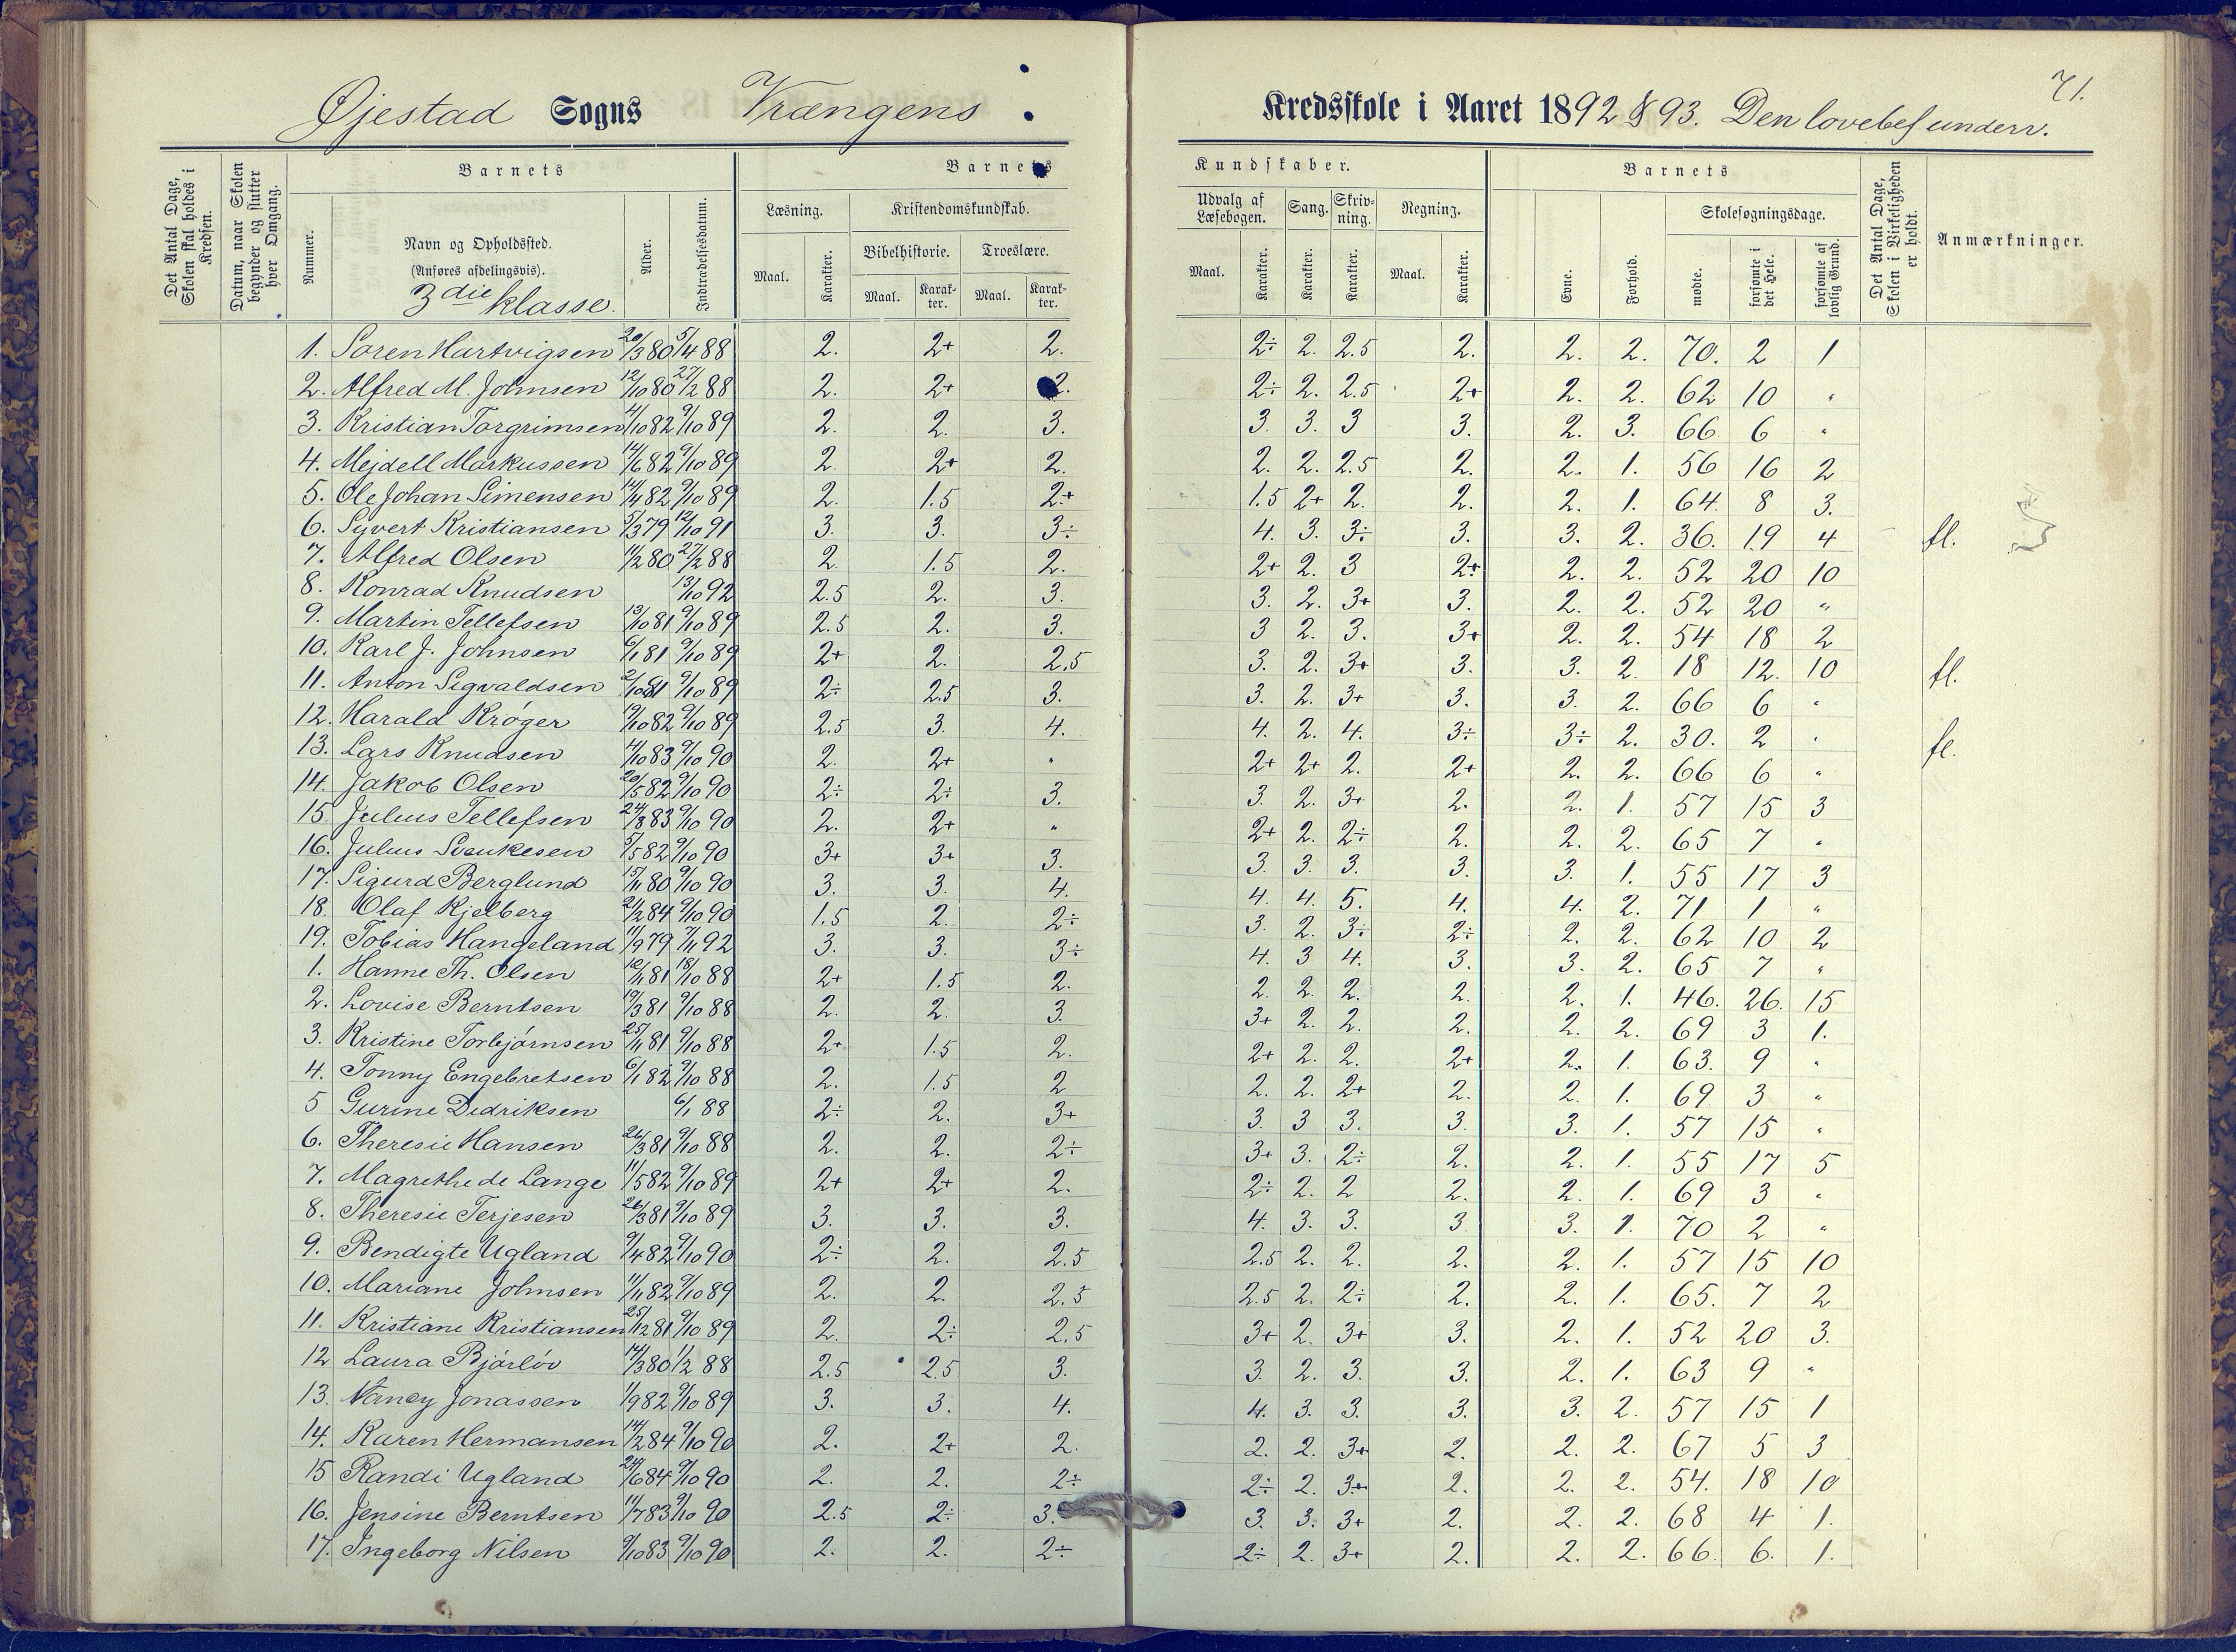 71.
Øjestad Sogns Vrængens Kredsskole i Aaret 1892 & 93. Den lovebef underr.
Det Antal Dage, Skolen skal holdes i Kredsen.
Datum, naar Skolen begynder og slutter hver Omgang.
Barnets
Nummer.
Navn og Opholdssted.
(Anføres afdelingsvis).
3die klasse.
Alder.
Indtrædelsesdatum.
Barnets Kundskaber.
Læsning. Maal. Karakter.
Kristendomskundskab.
Bibelhistorie. Maal. Karakter.
Troeslære. Maal. Karakter.
Udvalg af Læsebogen. Maal. Karakter.
Sang. Karakter.
Skrivning. Karakter.
Regning. Maal. Karakter.
Barnets
Evne.
Forhold.
Skolesøgningsdage.
mødte.
forsømte i det Hele.
forsømte af lovlig Grund.
Det Antal Dage, Skolen i Virkeligheden er holdt.
Anmærkninger.
1. Søren Hartvigsen 20/3 80 5/4 88 2. 2+ 2. 2÷ 2. 2.5 2. 2. 2. 70. 2 1
2. Alfred M. Johnsen 12/10 80 27/2 88 2. 2+ 2. 2÷ 2. 2.5 2+ 2. 2. 62 10 "
3. Kristian Torgrimsen 4/10 82 9/10 89 2. 2. 3. 3. 3. 3 3. 2. 3. 66 6 "
4. Mejdell Markussen 14/6 82 9/10 89 2 2+ 2. 2. 2. 2.5 2. 2. 1. 56 16 2
5. Ole Johan Simensen 14/4 82 9/10 89 2. 1.5 2+ 1.5 2+ 2. 2. 2. 1. 64. 8 3.
6. Syvert Kristiansen 5/3 79 12/10 91 3. 3. 3÷ 4. 3. 3÷ 3. 3. 2. 36. 19 4 fl.
7. Alfred Olsen 11/2 80 27/2 88 2. 1.5 2. 2+ 2. 3 2+ 2. 2. 52 20 10
8. Konrad Knudsen 13/10 92 2.5 2. 3. 3. 2. 3+ 3. 2. 2. 52 20 "
9. Martin Tellefsen 13/10 81 9/10 89 2.5 2. 3. 3 2. 3. 3+ 2. 2. 54 18 2
10. Karl J. Johnsen 6/1 81 9/10 89 2+ 2. 2.5 3. 2. 3+ 3. 3. 2. 18 12. 10 fl.
11. Anton Sigvaldsen 2/10 81 9/10 89 2÷ 2.5 3. 3. 2. 3+ 3. 3. 2. 66 6 "
12. Harald Krøger 19/10 82 9/10 89 2.5 3. 4. 4. 2. 4. 3÷ 3÷ 2. 30. 2 " fl.
13. Lars Knudsen 4/10 83 9/10 90 2. 2+ " 2+ 2+ 2. 2+ 2. 2. 66 6 "
14. Jakob Olsen 20/5 82 9/10 90 2÷ 2÷ 3. 3. 2. 3+ 2. 2. 1. 57 15 3
15 Julius Tellefsen 24/8 83 9/10 90 2. 2+ " 2+ 2. 2÷ 2. 2. 2. 65 7 "
16. Julius Svenkesen 5/5 82 9/10 90 3+ 3+ 3. 3. 3. 3. 3. 3. 1. 55 17 3
17. Sigurd Berglund 15/11 80 9/10 90 3. 3. 4. 4. 4. 5. 4. 4. 2. 71 1 "
18. Olaf Kjelberg 21/2 84 9/10 90 1.5 2. 2÷ 3. 2. 3÷ 2÷ 2. 2. 62 10 2
19. Tobias Hangeland 11/9 79 7/11 92 3. 3. 3÷ 4. 3 4. 3. 3. 2. 65 7 "
1. Hanne Th. Olsen 12/11 81 18/10 88 2+ 1.5 2. 2. 2. 2. 2. 2. 1. 46. 26. 15
2. Lovise Berntsen 19/3 81 9/10 88 2. 2. 3. 3+ 2. 2. 2. 2. 2. 69 3 1.
3. Kristine Torbjørnsen 25/11 81 9/10 88 2+ 1.5 2. 2+ 2. 2. 2+ 2. 1. 63. 9 "
4. Tonny Engebretsen 6/1 82 9/10 88 2. 1.5 2 2. 2. 2+ 2. 2. 1. 69 3 "
5 Gurine Didriksen 6/1 88 2÷ 2. 3+ 3. 3 3. 3. 3. 1. 57 15 "
6. Theresie Hansen 26/3 81 9/10 88 2. 2. 2÷ 3+ 3. 2÷ 2. 2. 1. 55 17 5
7. Magrethe de Lange 11/5 82 9/10 89 2+ 2+ 2. 2÷ 2. 2 2. 2. 1. 69 3 "
8. Theresie Terjesen 26/3 81 9/10 89 3. 3. 3. 4. 3. 3. 3 3. 1. 70 2 "
9. Bendigte Ugland 9/4 82 9/10 90 2÷ 2. 2.5 2.5 2. 2. 2. 2. 1. 57 15 10
10. Mariane Johnsen 11/11 82 9/10 89 2. 2. 2.5 2.5 2. 2÷ 2. 2. 1. 65. 7 2
11. Kristiane Kristiansen 25/12 81 9/10 89 2. 2÷ 2.5 3+ 2. 3+ 3. 2. 1. 52 20 3.
12 Laura Bjørløv 14/3 80 1/2 88 2.5 2.5 3. 3. 2. 3. 3. 2. 1. 63 9 "
13. Nancy Jonassen 1/9 82 9/10 89 3. 3. 4. 4. 3. 3. 3. 3. 2. 57 15 1
14. Karen Hermansen 14/2 84 9/10 90 2. 2+ 2. 2. 2. 3+ 2. 2. 2. 67 5 3
15 Randi Ugland 24/6 84 9/10 90 2. 2. 2÷ 2÷ 2. 3+ 2. 2. 2. 54. 18 10
16. Jensine Berntsen 11/7 83 9/10 90 2.5 2÷ 3. 3. 3. 3+ 2. 2. 2. 68 4 1.
17. Ingeborg Nilsen 9/10 83 9/10 90 2. 2. 2÷ 2÷ 2. 3+ 2. 2. 2. 66. 6. 1.